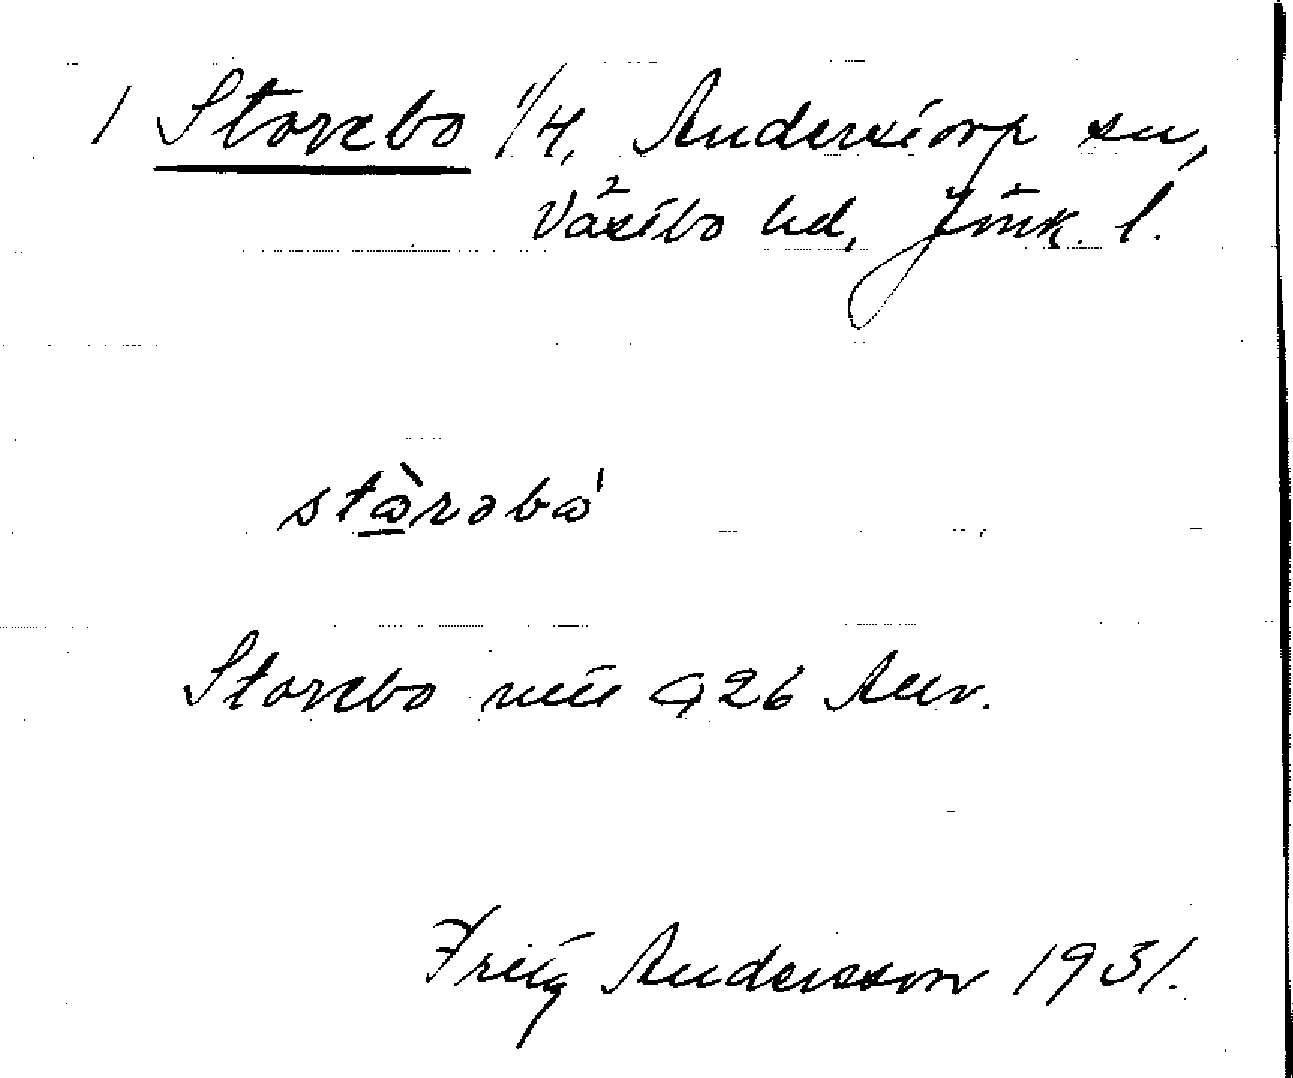 1 Storebo 1/4, Anderstorp sn,
Västbo hd, Jönk. l.
Storebo 926 Anv.
Fritz Andersson 1931.